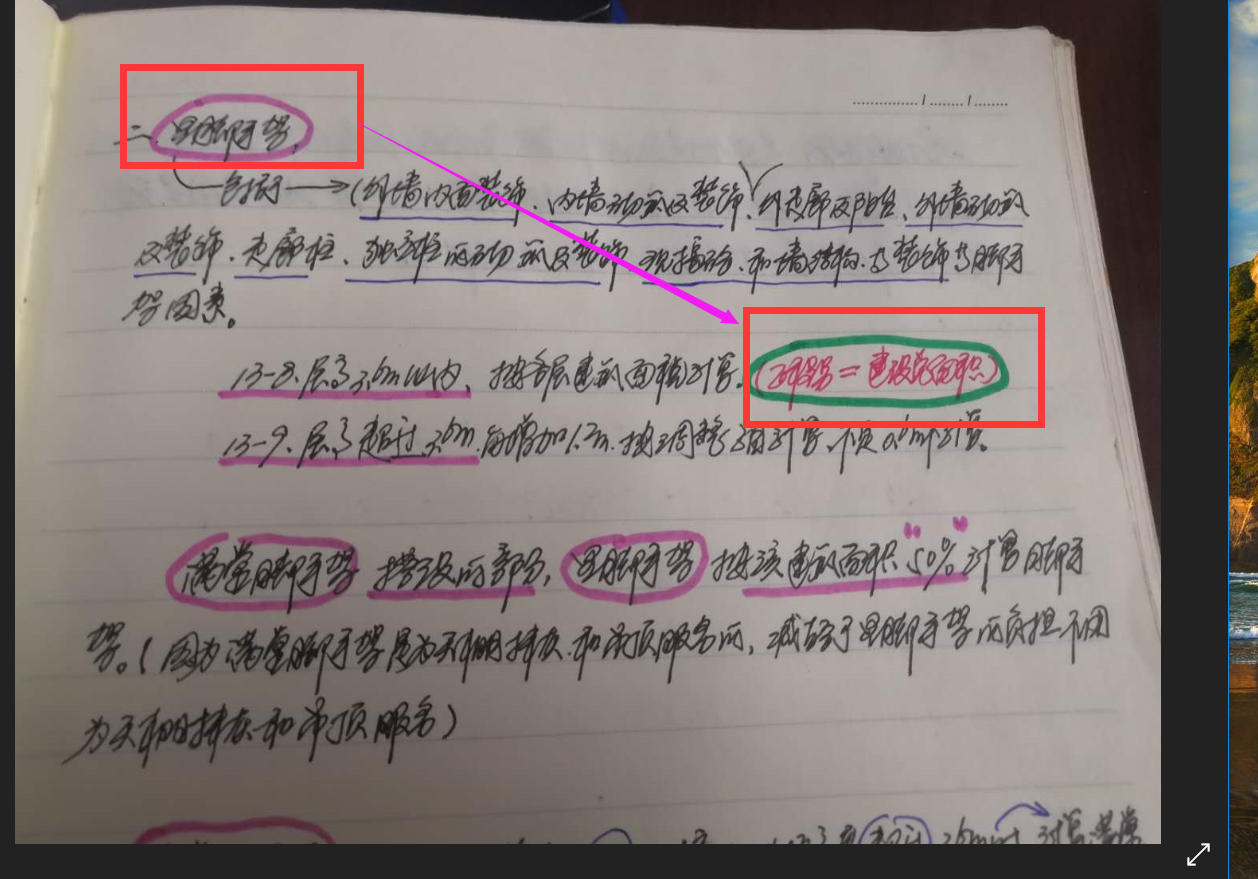 二、里脚手架,
包括→(外墙内面装饰、内墙砌筑及装饰、外走廊及阳台、外墙砌筑
及装饰、走廊柱、独立柱的砌筑及装饰、现捣砼、和墙结构、与装饰与脚手
架因素。
13-8、层高3.6m以内、按各层建筑面积计算。(=建设总面积)
13-9、层高超过3.6m、每增加1.2m、按调整计算、不足0.6m不计算。
满堂脚手架 搭设的部分, 里脚手架 按该建筑面积"50%"计算脚手
架。(因为满堂脚手架是为天棚抹灰、和吊顶服务的, 减轻了里脚手架的负担不用
为天棚抹灰和吊顶服务)
3.6m时 计算满堂